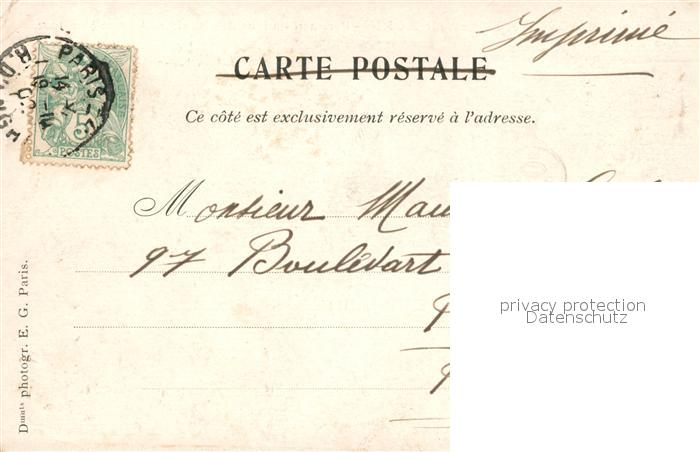 Imprimé
CARTE POSTALE
Ce côté est exclusivement réservé à l'adresse.
PARIS
5
POSTES
Monsieur
97 Boulévart
privacy protection
Datenschutz
Dmats photogr. E. G. Paris.